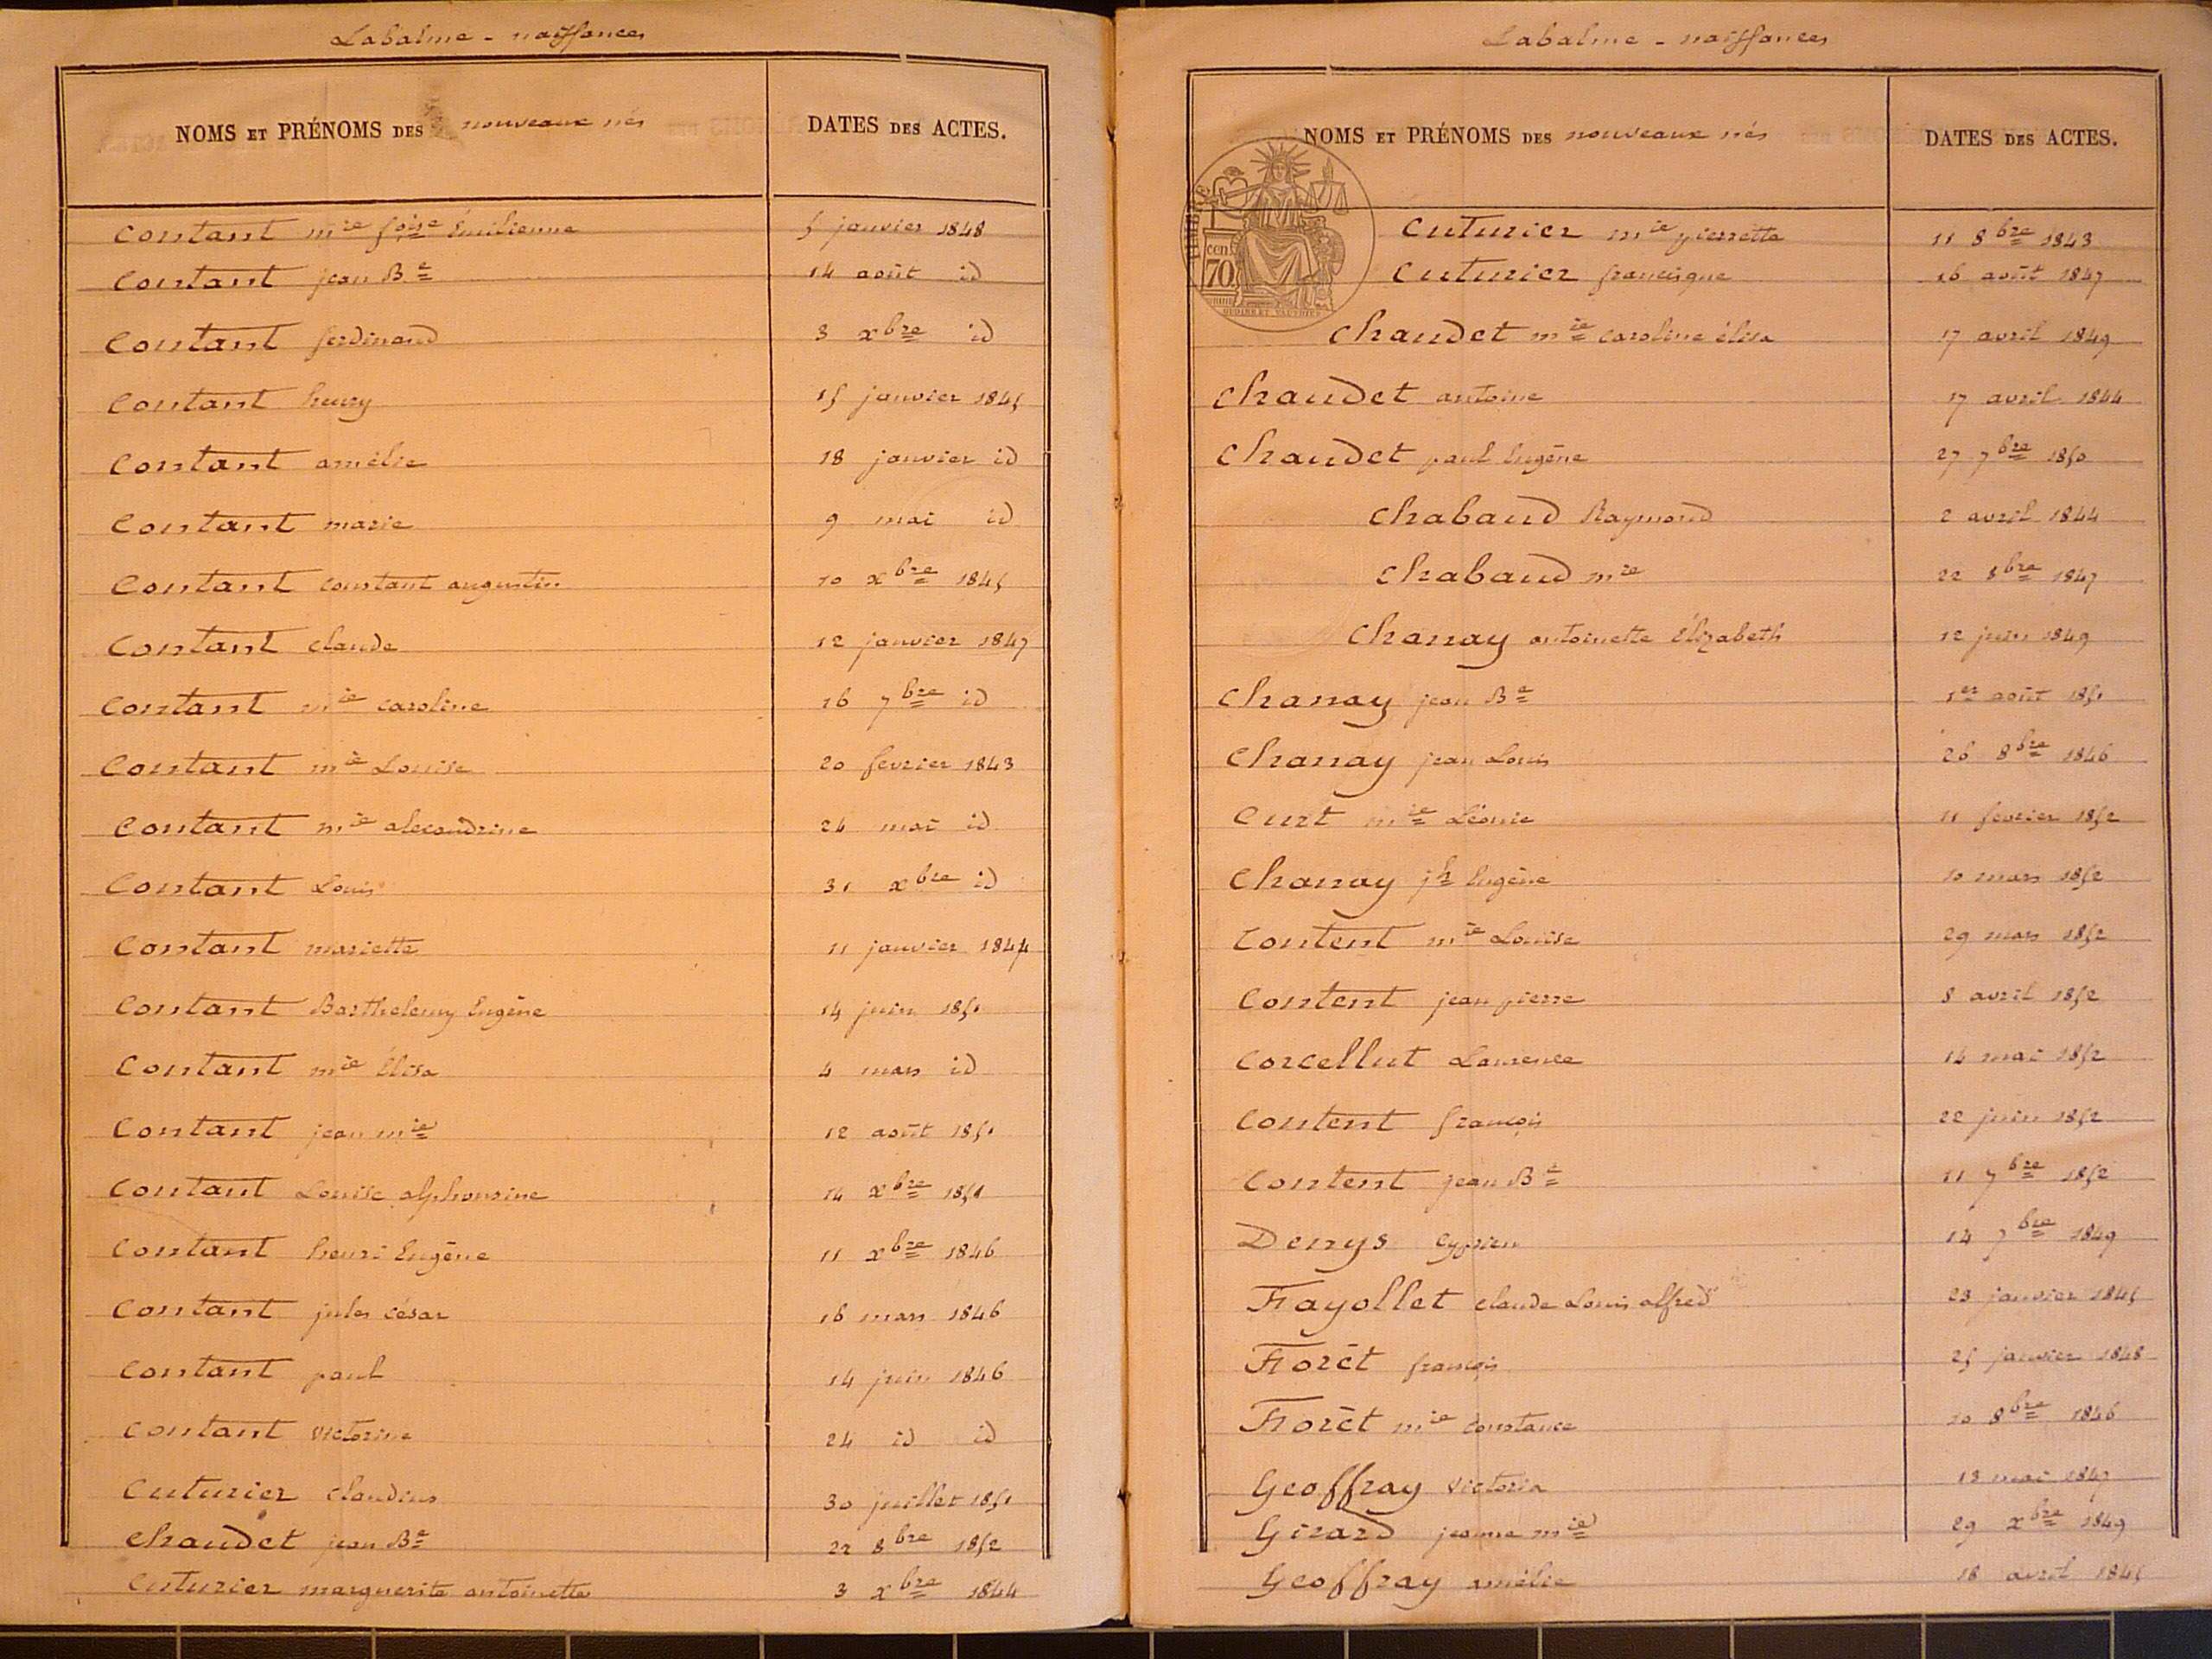 Labalme - naissances
NOMS ET PRÉNOMS DES nouveaux nés
DATES DES ACTES.
Contant mie foise Émilienne 5 janvier 1848
Contant jean Bte 14 août id
Contant ferdinand 3 xbre id
Contant henry 15 janvier 1845
Contant amélie 18 janvier id
Contant marie 9 mai id
Contant constant augustin 10 xbre 1845
Contant claude 12 janvier 1847
Contant mie caroline 16 7bre id
Contant mie Louise 20 fevrier 1843
Contant mie alexandrine 24 mai id
Contant Louis 31 xbre id
Contant mariette 11 janvier 1844
Contant Barthelemy Eugène 14 juin 1851
Contant mie Élisa 4 mars id
Contant jean mie 12 août 1851
Contant Louise alphonsine 14 xbre 1851
Contant henri Eugène 11 xbre 1846
Contant jules césar 16 mars 1846
Contant paul 14 juin 1846
Contant victorine 24 id id
Cuturier claudius 30 juillet 1851
Chaudet jean Bte 22 8bre 1852
Cuturier marguerite antoinette 3 xbre 1844
Labalme - naissances
NOMS ET PRÉNOMS DES nouveaux nés
DATES DES ACTES.
TIMBRE
cent
70
Cuturier mie pierrette 11 8bre 1843
Cuturier francisque 16 août 1847
Chaudet mie caroline élisa 17 avril 1849
Chaudet antoine 17 avril 1844
Chaudet paul Eugène 27 7bre 1850
Chabaud Raymond 2 avril 1844
Chabaud mie 22 8bre 1847
Chanay antoinette Élizabeth 12 juin 1849
Chanay jean Bte 1er août 1851
Chanay jean Louis 26 8bre 1846
Curt mie Léonie 11 fevrier 1852
Chanay jh Eugène 10 mars 1852
Content mie Louise 29 mars 1852
Content jean pierre 8 avril 1852
Corcellut Laurence 14 mai 1852
Content françois 22 juin 1852
Content jean Bte 11 7bre 1852
Denys Cyprien 14 7bre 1849
Fayollet claude Louis alfred 23 janvier 1845
Forêt françois 25 janvier 1848
Forêt mie constance 10 8bre 1846
Geoffray victoria 13 mai 1847
Girard jeanne mie 29 xbre 1849
Geoffray amélie 18 avril 1845